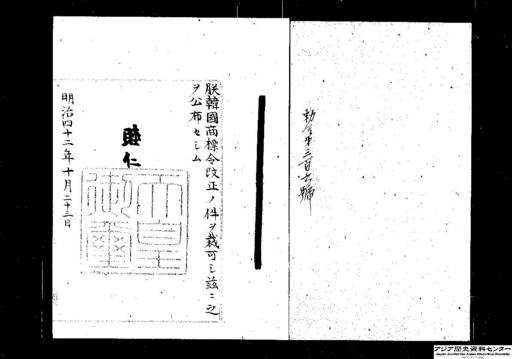 勅令第三百六號
朕韓國商標令改正ノ件ヲ裁可シ茲ニ之
ヲ公布セシム
睦仁
天皇
御璽
明治四十二年十月二十三日
アジア歴史資料センター
Japan Center for Asian Historical Records